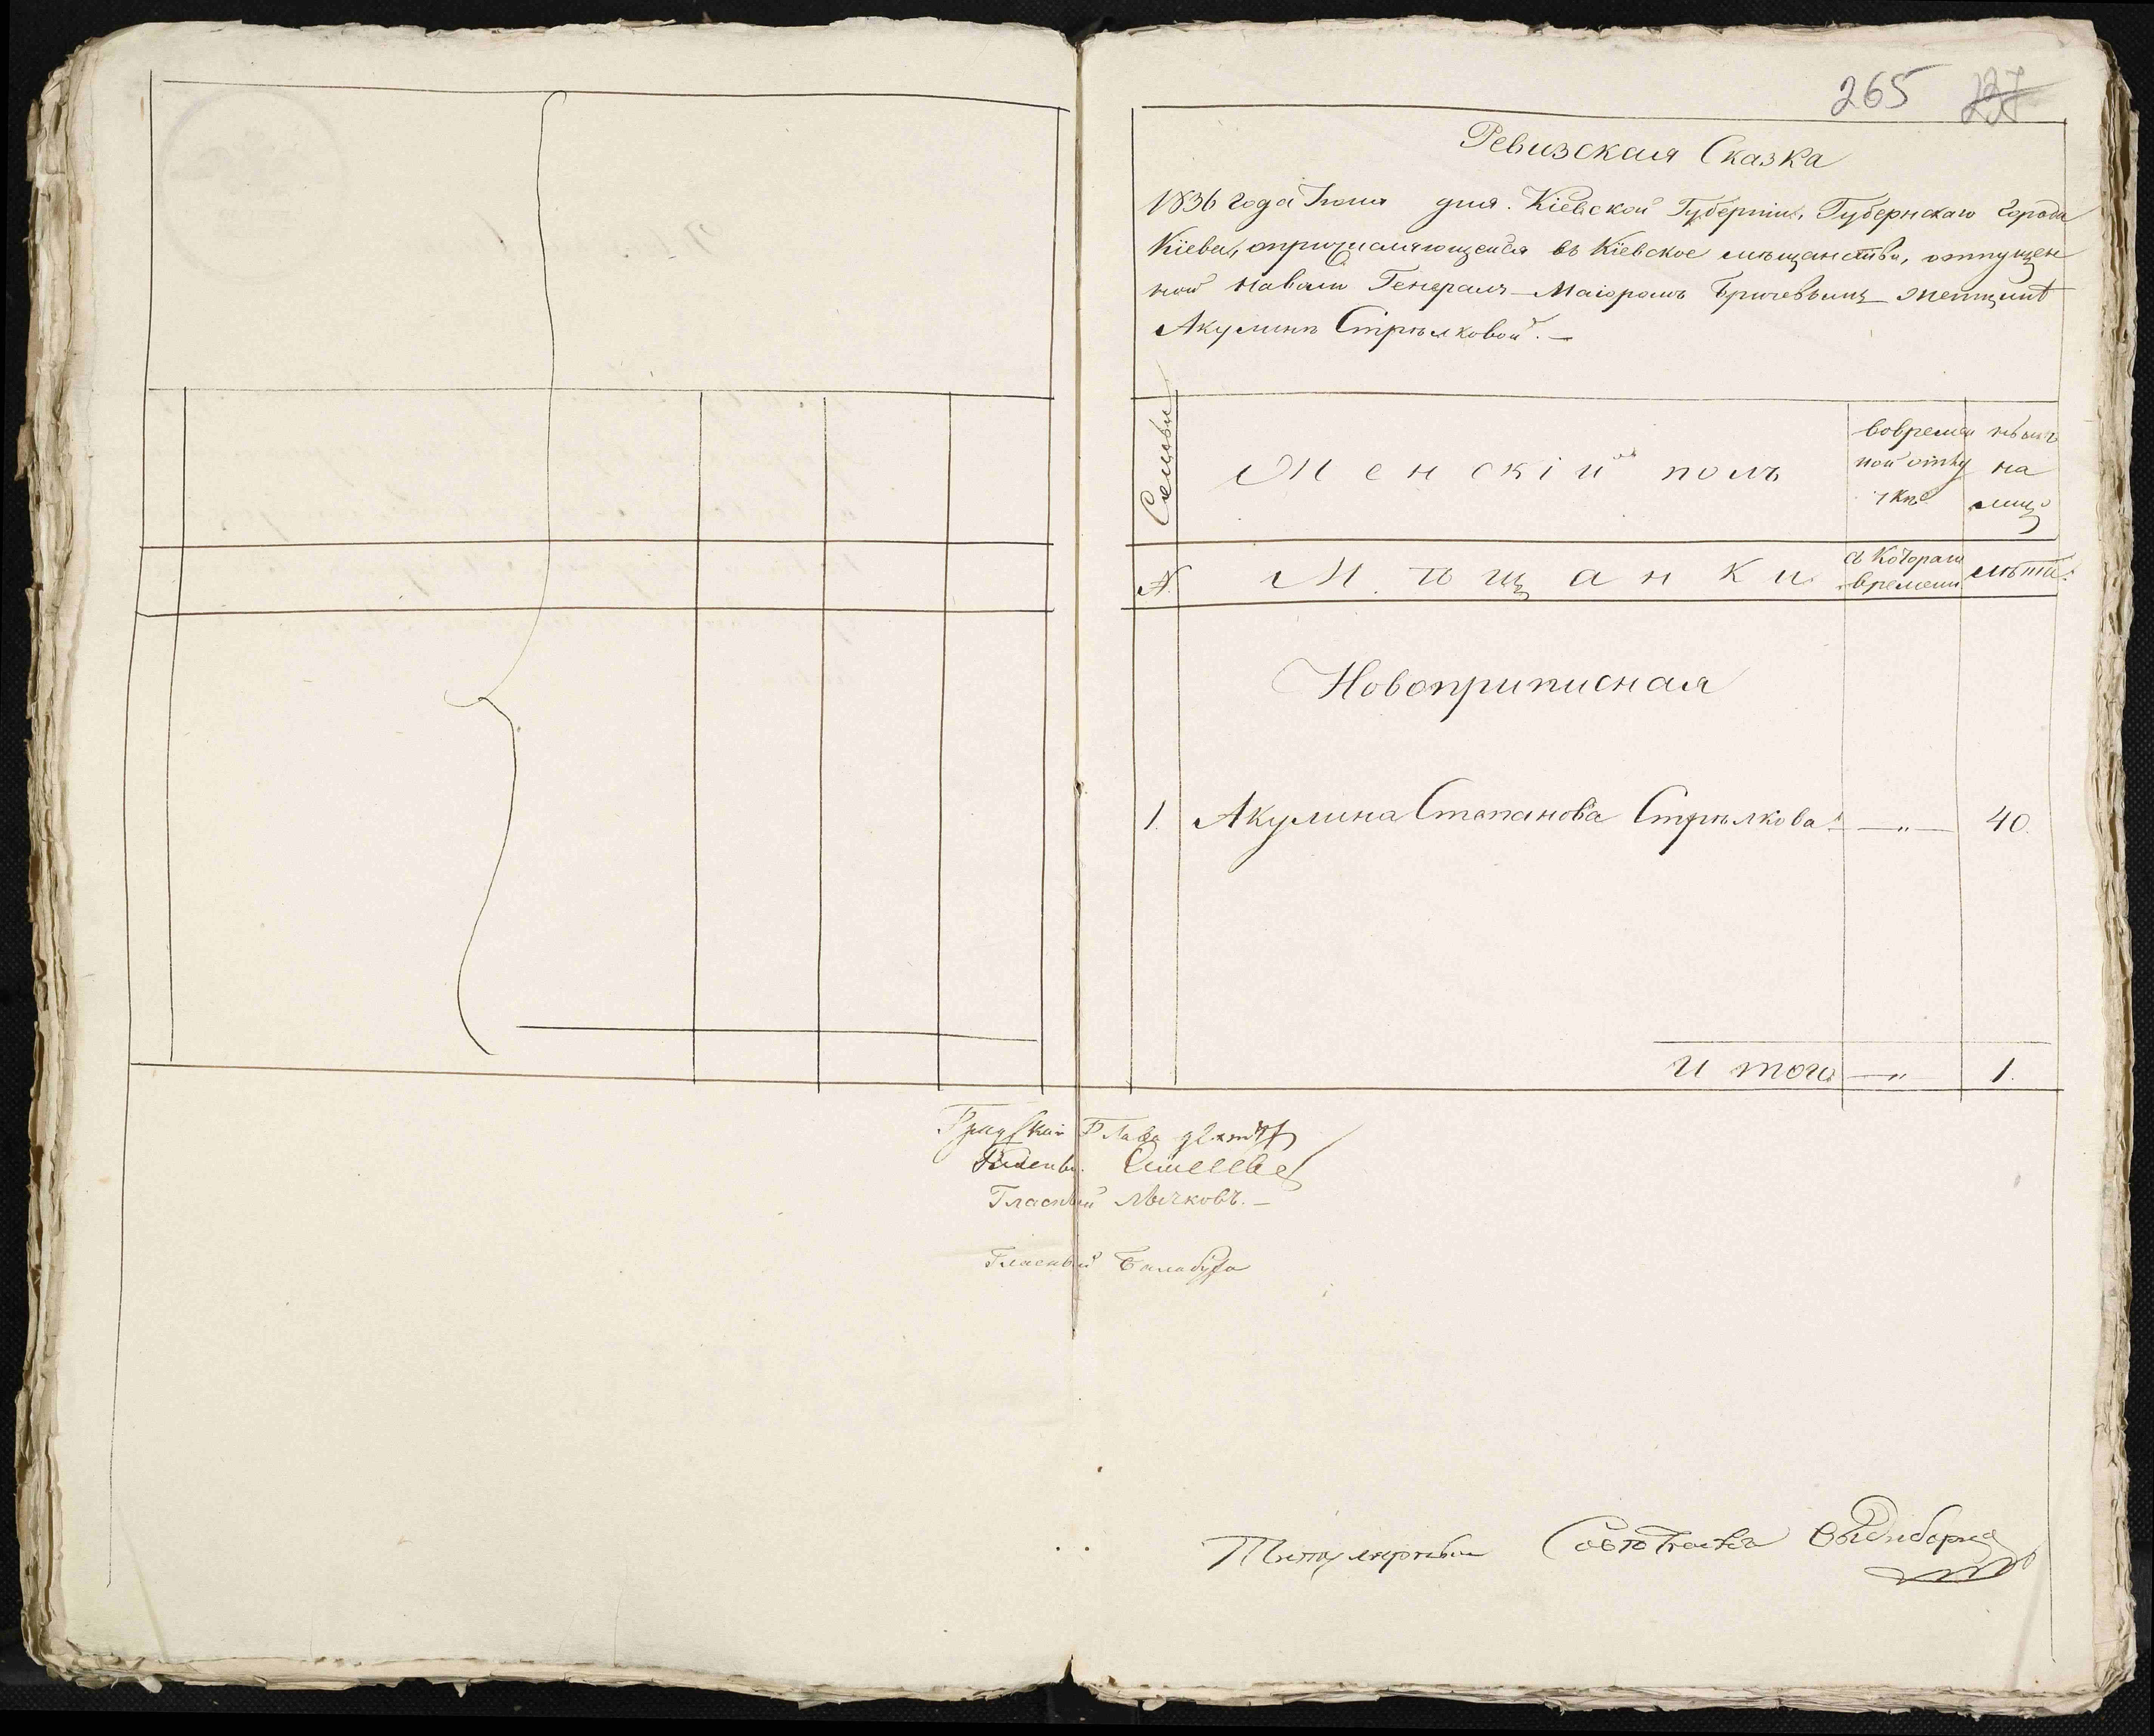 265 137
Ревизская Сказка
1836 года Июня дня. Кіевской Губерніи, Губернскаго города
Кіева, о причисляющейся въ Кіевское мѣщанство, отпущен
ной на волю Генералъ-Маіоромъ женщинѣ
Акулинѣ Стрѣлковой. —
Семьи
Женскій полъ
во времен
ной отлу
чкѣ
нынѣ
на
лицо
№
Мѣщанки
съ котораго
времени
лѣта.
Новоприписная
1. Акулина Степанова Стрѣлкова. — „ — 40.
Итого — „ 1.
Градскій Глава
Гласный Лычковъ. —
Гласный Балабуха
Титулярный Совѣтникъ